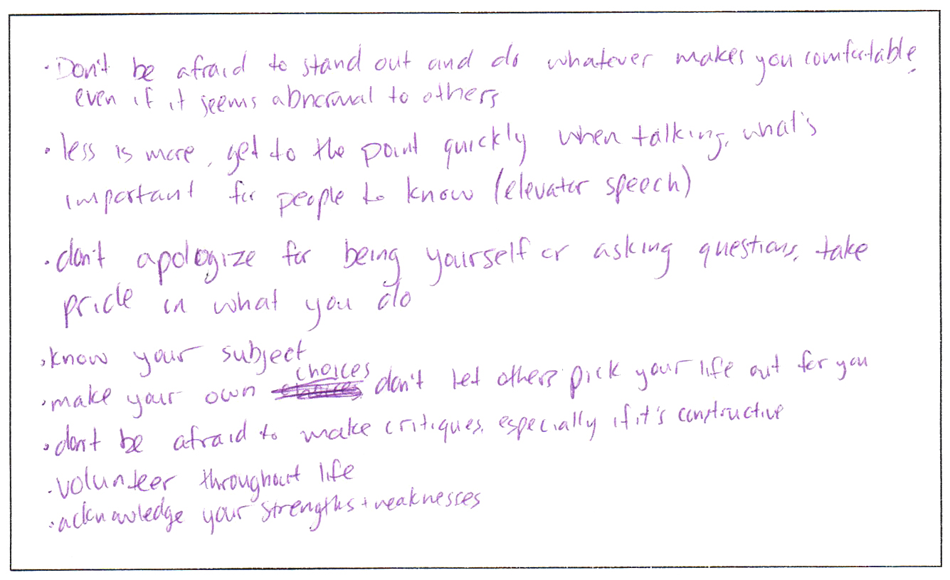 · Don't be afraid to stand out and do whatever makes you comfortable,
even if it seems abnormal to others
· less is more, get to the point quickly when talking, what's
important for people to know (elevator speech)
· don't apologize for being yourself or asking questions, take
pride in what you do
· know your subject
· make your own choices don't let others pick your life out for you
· don't be afraid to make critiques, especially if it's constructive
· volunteer throughout life
· acknowledge your strengths + weaknesses